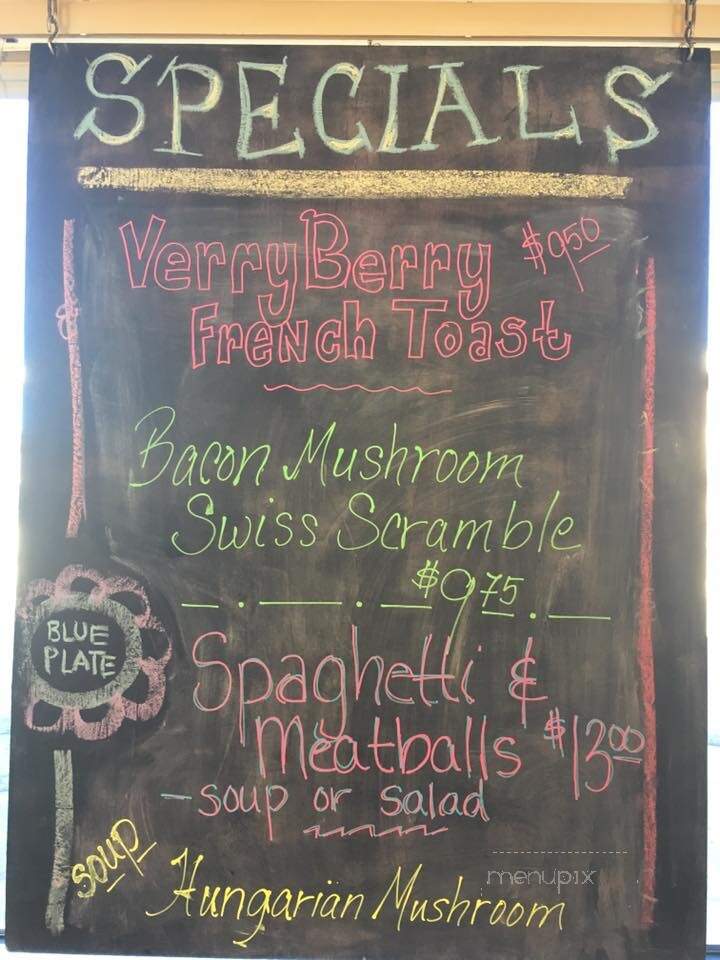 SPECIALS
Verry Berry $9.50
French Toast
Bacon Mushroom
Swiss Scramble
$9.75
BLUE
PLATE
Spaghetti &
Meatballs $13.00
- soup or salad
soup
Hungarian Mushroom
menupix